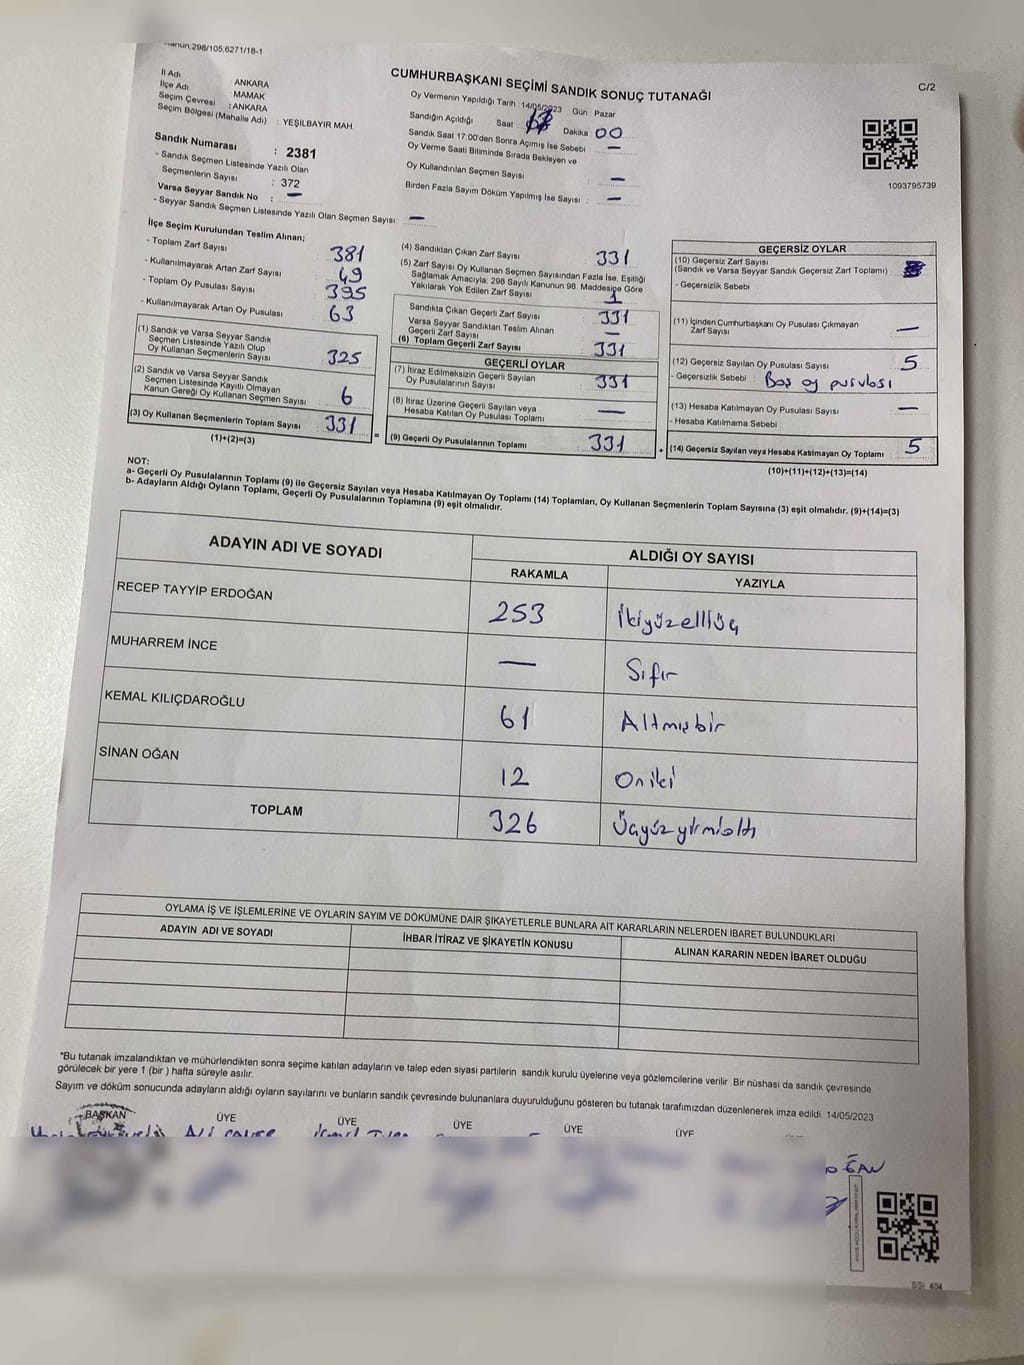 Kanun:298/105,6271/18-1
CUMHURBAŞKANI SEÇİMİ SANDIK SONUÇ TUTANAĞI
C/2
İl Adı : ANKARA
İlçe Adı : MAMAK
Seçim Çevresi : ANKARA
Seçim Bölgesi (Mahalle Adı) : YEŞİLBAYIR MAH.
Oy Vermenin Yapıldığı Tarih : 14/05/2023 Gün Pazar
Sandığın Açıldığı Saat Dakika 00
Sandık Saat 17:00'den Sonra Açımış İse Sebebi : —
Oy Verme Saati Bitiminde Sırada Bekleyen ve
Oy Kullandırılan Seçmen Sayısı : —
Birden Fazla Sayım Döküm Yapılmış İse Sayısı : —
1093795739
Sandık Numarası : 2381
- Sandık Seçmen Listesinde Yazılı Olan
Seçmenlerin Sayısı : 372
Varsa Seyyar Sandık No : —
- Seyyar Sandık Seçmen Listesinde Yazılı Olan Seçmen Sayısı: —
İlçe Seçim Kurulundan Teslim Alınan;
- Toplam Zarf Sayısı 381
- Kullanılmayarak Artan Zarf Sayısı 49
- Toplam Oy Pusulası Sayısı 395
- Kullanılmayarak Artan Oy Pusulası 63
(1) Sandık ve Varsa Seyyar Sandık
Seçmen Listesinde Yazılı Olup
Oy Kullanan Seçmenlerin Sayısı 325
(2) Sandık ve Varsa Seyyar Sandık
Seçmen Listesinde Kayıtlı Olmayan
Kanun Gereği Oy Kullanan Seçmen Sayısı 6
(3) Oy Kullanan Seçmenlerin Toplam Sayısı 331
(1)+(2)=(3)
(4) Sandıktan Çıkan Zarf Sayısı 331
(5) Zarf Sayısı Oy Kullanan Seçmen Sayısından Fazla İse, Eşitliği
Sağlamak Amacıyla; 298 Sayılı Kanunun 98. Maddesine Göre
Yakılarak Yok Edilen Zarf Sayısı 1
Sandıkta Çıkan Geçerli Zarf Sayısı 331
Varsa Seyyar Sandıktan Teslim Alınan
Geçerli Zarf Sayısı —
(6) Toplam Geçerli Zarf Sayısı 331
GEÇERLİ OYLAR
(7) İtiraz Edilmeksizin Geçerli Sayılan
Oy Pusulalarının Sayısı 331
(8) İtiraz Üzerine Geçerli Sayılan veya
Hesaba Katılan Oy Pusulası Toplamı —
= (9) Geçerli Oy Pusulalarının Toplamı 331
GEÇERSİZ OYLAR
(10) Geçersiz Zarf Sayısı
(Sandık ve Varsa Seyyar Sandık Geçersiz Zarf Toplamı) :
- Geçersizlik Sebebi :
(11) İçinden Cumhurbaşkanı Oy Pusulası Çıkmayan
Zarf Sayısı : —
(12) Geçersiz Sayılan Oy Pusulası Sayısı : 5
- Geçersizlik Sebebi : Boş oy pusulası
(13) Hesaba Katılmayan Oy Pusulası Sayısı : —
- Hesaba Katılmama Sebebi :
+ (14) Geçersiz Sayılan veya Hesaba Katılmayan Oy Toplamı : 5
(10)+(11)+(12)+(13)=(14)
NOT:
a- Geçerli Oy Pusulalarının Toplamı (9) ile Geçersiz Sayılan veya Hesaba Katılmayan Oy Toplamı (14) Toplamları, Oy Kullanan Seçmenlerin Toplam Sayısına (3) eşit olmalıdır. (9)+(14)=(3)
b- Adayların Aldığı Oyların Toplamı, Geçerli Oy Pusulalarının Toplamına (9) eşit olmalıdır.
ADAYIN ADI VE SOYADI
ALDIĞI OY SAYISI
RAKAMLA YAZIYLA
RECEP TAYYİP ERDOĞAN 253 İkiyüzelliüç
MUHARREM İNCE — Sıfır
KEMAL KILIÇDAROĞLU 61 Altmışbir
SİNAN OĞAN 12 Oniki
TOPLAM 326 Üçyüzyirmialtı
OYLAMA İŞ VE İŞLEMLERİNE VE OYLARIN SAYIM VE DÖKÜMÜNE DAİR ŞİKAYETLERLE BUNLARA AİT KARARLARIN NELERDEN İBARET BULUNDUKLARI
ADAYIN ADI VE SOYADI
İHBAR İTİRAZ VE ŞİKAYETİN KONUSU
ALINAN KARARIN NEDEN İBARET OLDUĞU
*Bu tutanak imzalandıktan ve mühürlendikten sonra seçime katılan adayların ve talep eden siyasi partilerin sandık kurulu üyelerine veya gözlemcilerine verilir. Bir nüshası da sandık çevresinde
görülecek bir yere 1 (bir ) hafta süreyle asılır.
Sayım ve döküm sonucunda adayların aldığı oyların sayılarını ve bunların sandık çevresinde bulunanlara duyurulduğunu gösteren bu tutanak tarafımızdan düzenlenerek imza edildi. 14/05/2023
BAŞKAN ÜYE ÜYE ÜYE ÜYE ÜYE